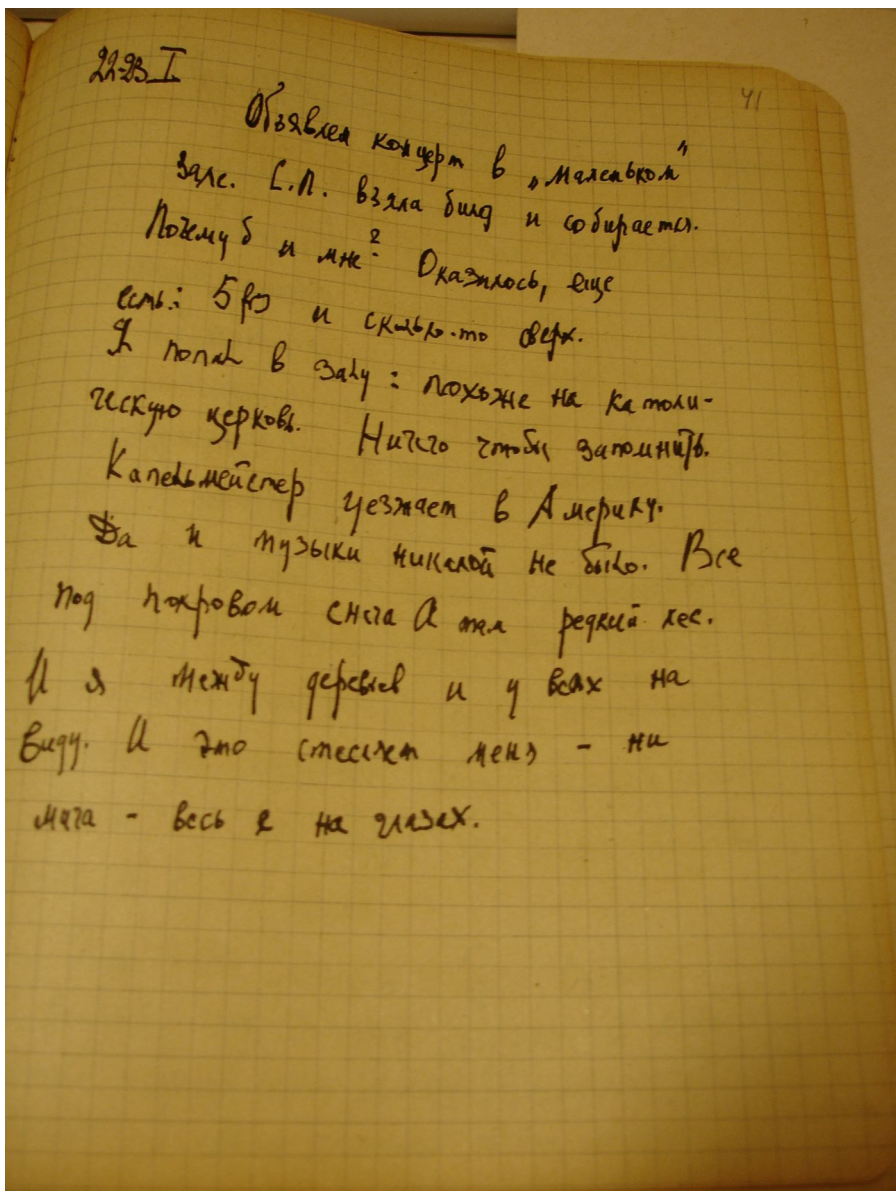 22-23 I
41
Объявлен концерт в „маленьком"
зале. С.П. взяла билд и собирается.
Почему б и мне? Оказалось, еще
есть: 5 и сколько-то сверх.
Я попал в залу: похоже на католи-
ческую церковь. Ничего чтобы запомнить.
Капельмейстер уезжает в Америку.
Да и музыки никакой не было. Все
под покровом снега А там редкий лес.
И я между деревьев и у всех на
виду. И это стесняет меня - ни
шага - весь я на глазах.